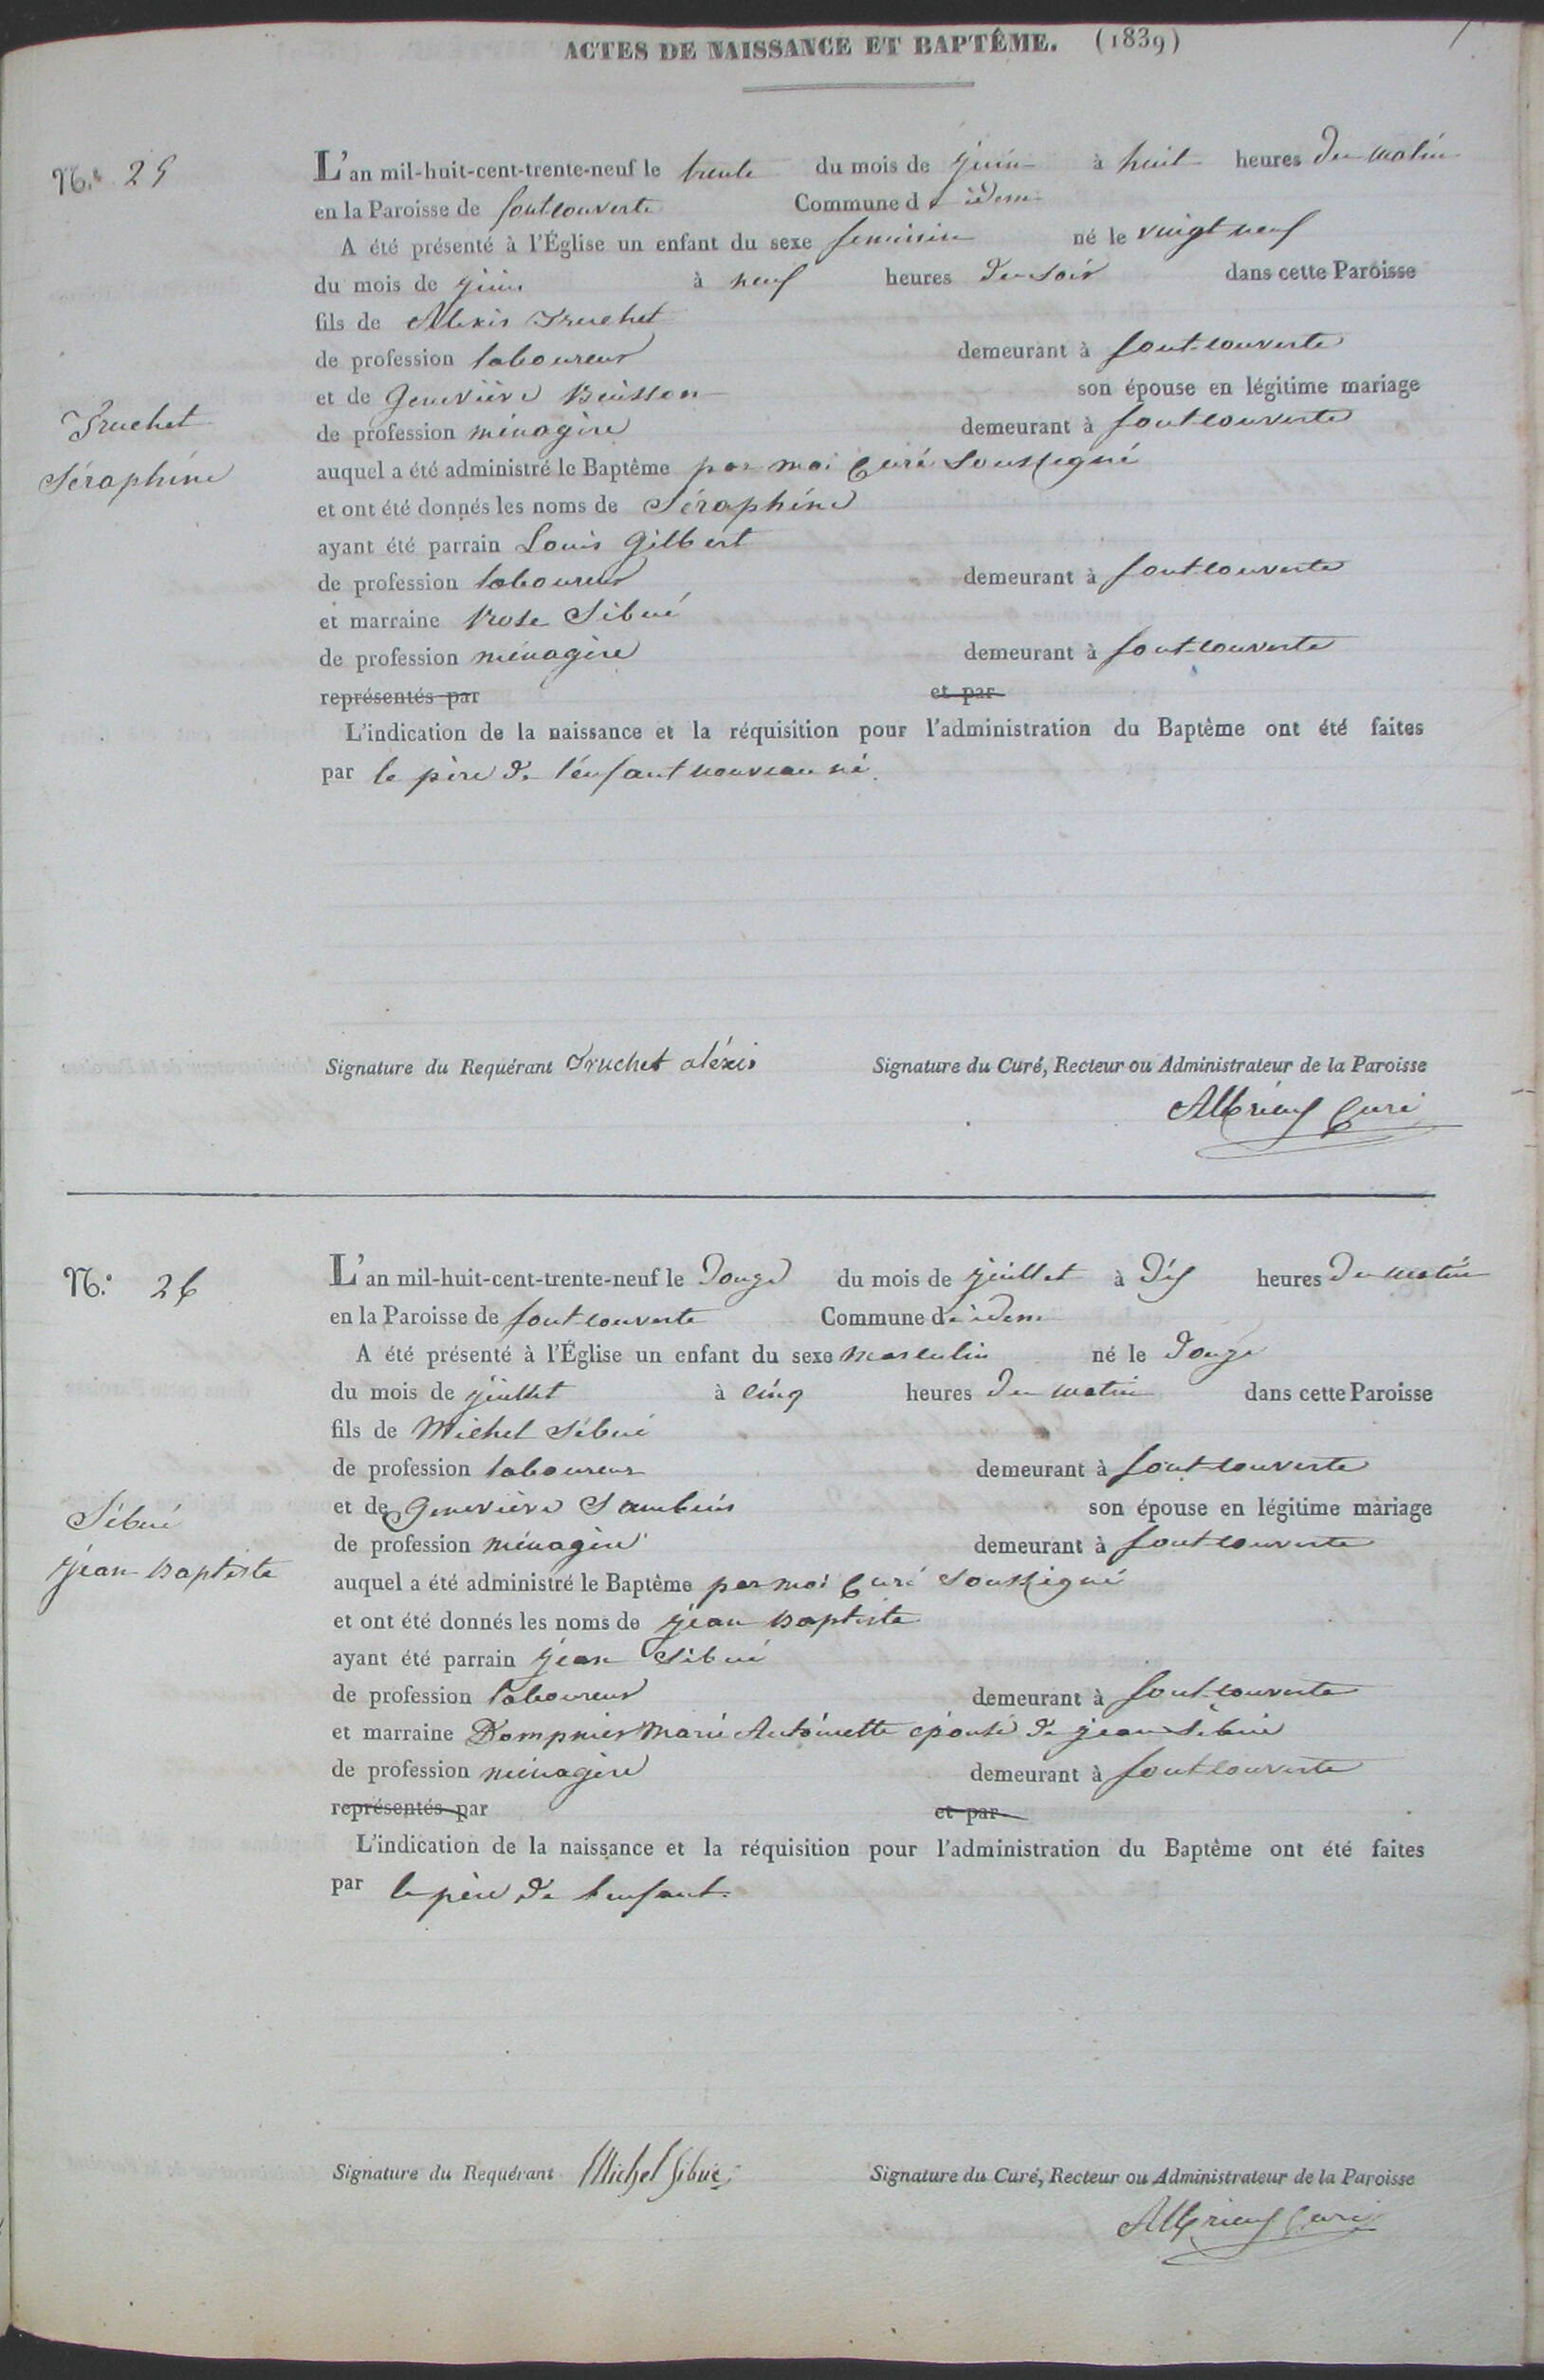 ACTES DE NAISSANCE ET BAPTÊME. (1839)
N.° 25
L'an mil-huit-cent-trente-neuf le trente du mois de juin à huit heures du matin
en la Paroisse de fontcouverte Commune de idem
A été présenté à l'Église un enfant du sexe feminin né le vingt neuf
du mois de juin à neuf heures du soir dans cette Paroisse
fils de Alexis Truchet
de profession laboureur demeurant à fontcouverte
et de Geneviève Buisson son épouse en légitime mariage
Truchet
Séraphine
de profession ménagère demeurant à fontcouverte
auquel a été administré le Baptême par moi Curé soussigné
et ont été donnés les noms de Séraphine
ayant été parrain Louis Gilbert
de profession laboureur demeurant à fontcouverte
et marraine Rose Sibué
de profession ménagère demeurant à fontcouverte
représentés par et par
L'indication de la naissance et la réquisition pour l'administration du Baptême ont été faites
par le père de l'enfant nouveau né.
Signature du Requérant Truchet aléxis Signature du Curé, Recteur ou Administrateur de la Paroisse
Albrieux Curé
N.° 26
L'an mil-huit-cent-trente-neuf le douze du mois de juillet à dix heures du matin
en la Paroisse de fontcouverte Commune de idem
A été présenté à l'Église un enfant du sexe masculin né le douze
du mois de juillet à cinq heures du matin dans cette Paroisse
fils de Michel Sibué
de profession laboureur demeurant à fontcouverte
et de Geneviève Sambuis son épouse en légitime mariage
Sibué
jean Baptiste
de profession ménagère demeurant à fontcouverte
auquel a été administré le Baptême par moi Curé soussigné
et ont été donnés les noms de jean Baptiste
ayant été parrain jean Sibué
de profession laboureur demeurant à fontcouverte
et marraine Dompnier Marie Antoinette épouse de jean Sibué
de profession ménagère demeurant à fontcouverte
représentés par et par
L'indication de la naissance et la réquisition pour l'administration du Baptême ont été faites
par le père de l'enfant.
Signature du Requérant Michel Sibué Signature du Curé, Recteur ou Administrateur de la Paroisse
Albrieux Curé